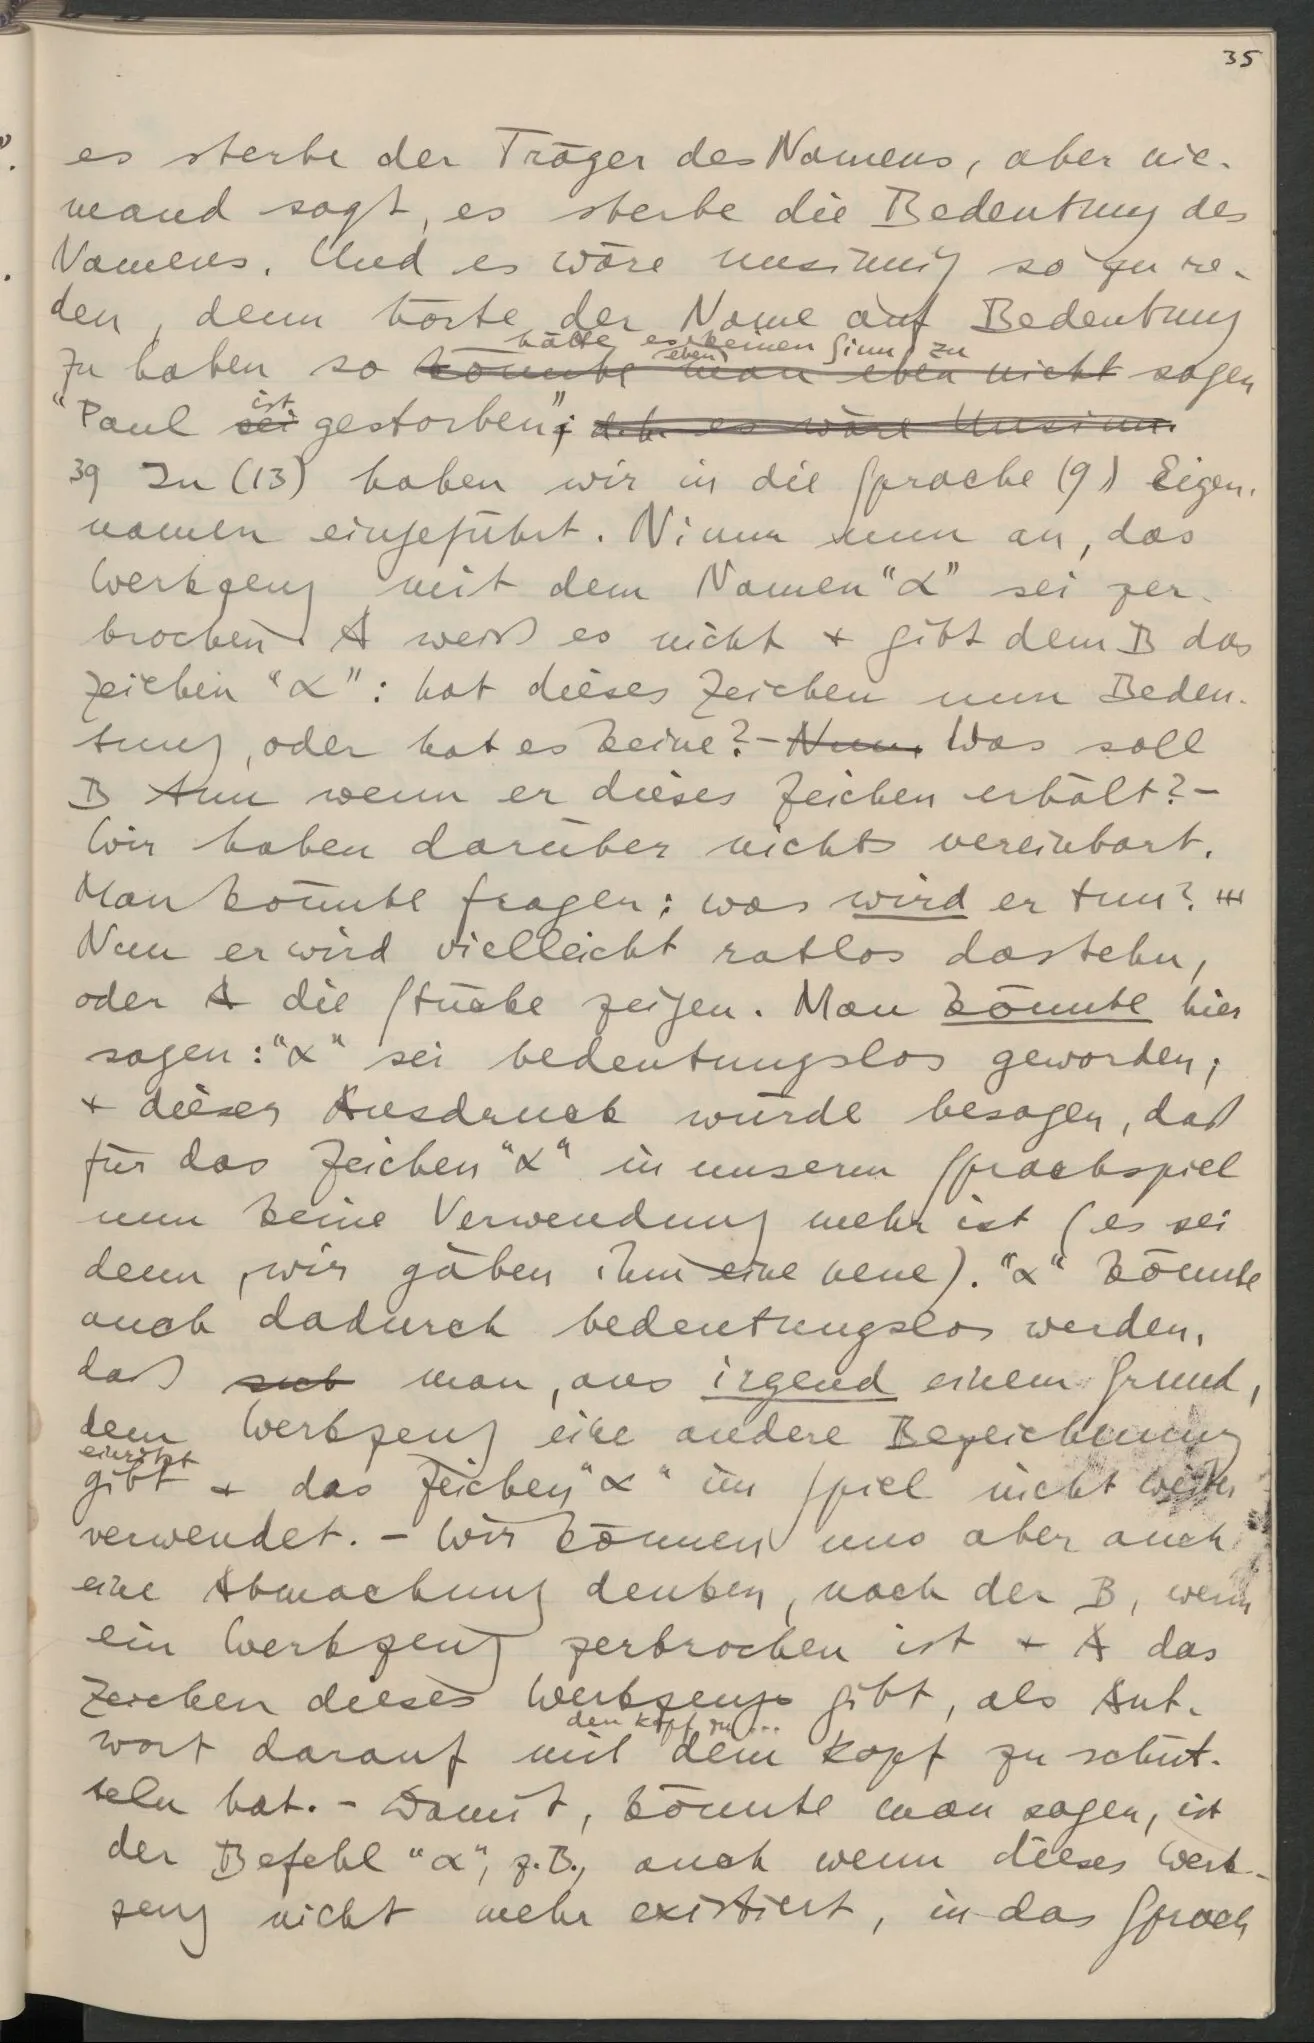 35
es sterbe der Träger des Namens, aber nie-
mand sagt, es sterbe die Bedeutung des
Namens. Und es wäre unsinnig so zu re-
den, denn hörte der Name auf Bedeutung
hätte es keinen Sinn zu
eben
zu haben so könnte man eben nicht sagen
ist
"Paul sei gestorben"; d.h. es wäre Unsinn.
39 In (13) haben wir in die Sprache (9) Eigen-
namen eingeführt. Nimm nun an, das
Werkzeug mit dem Namen "α" sei zer-
brochen. A weiß es nicht + gibt dem B das
Zeichen "α": hat dieses Zeichen nun Bedeu-
tung, oder hat es keine? – Nun, Was soll
B tun wenn er dieses Zeichen erhält? –
Wir haben darüber nichts vereinbart.
Man könnte fragen: was wird er tun?
Nun er wird vielleicht ratlos dastehn,
oder A die Stücke zeigen. Man könnte hier
sagen: "α" sei bedeutungslos geworden;
+ dieser Ausdruck würde besagen, daß
für das Zeichen "α" in unserm Sprachspiel
nun keine Verwendung mehr ist (es sei
denn, wir gäben ihm eine neue). "α" könnte
auch dadurch bedeutungslos werden,
daß man, aus irgend einem Grund,
dem Werkzeug eine andere Bezeichnung
einritzt
gibt + das Zeichen "α" im Spiel nicht weiter
verwendet. – Wir können uns aber auch
eine Abmachung denken, nach der B, wenn
ein Werkzeug zerbrochen ist + A das
Zeichen dieses Werkzeugs gibt, als Ant-
den Kopf zu ...
wort darauf mit dem Kopf zu schüt-
teln hat. – Damit, könnte man sagen, ist
der Befehl "α", z.B., auch wenn dieses Werk-
zeug nicht mehr existiert, in das Sprach